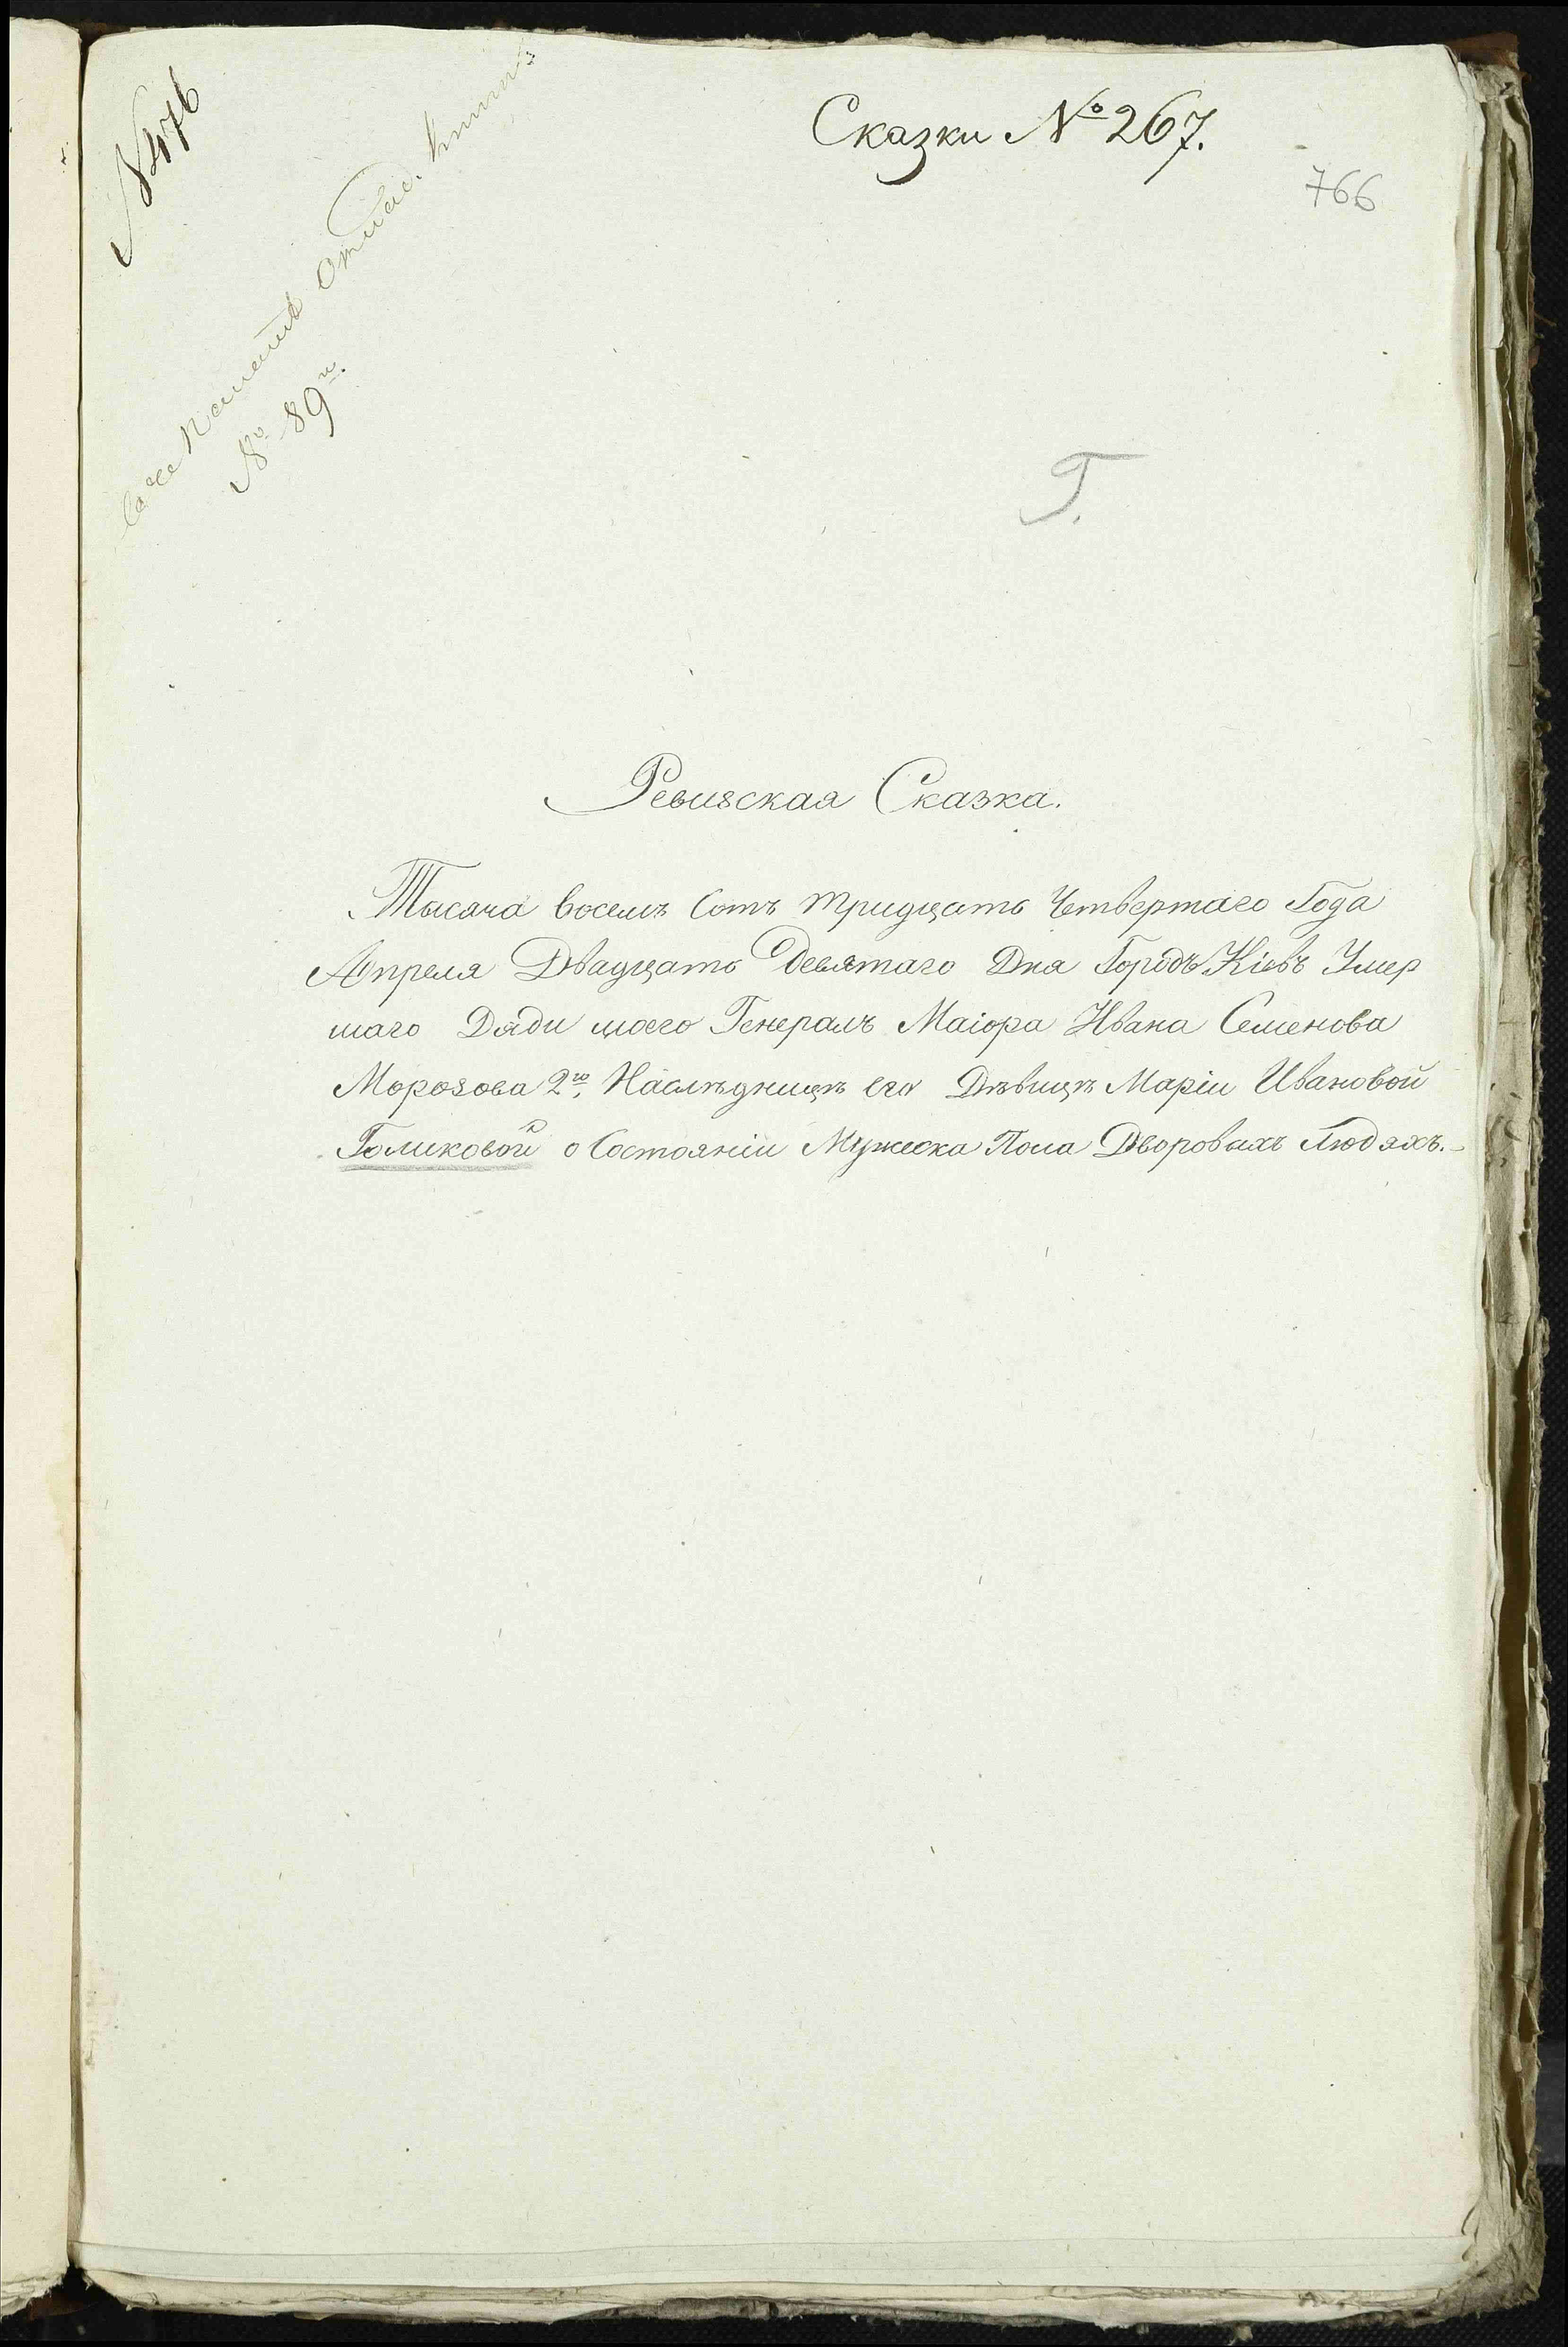 N 476
Сказки № 267.
766
№ 89й.
Г.
Ревизская Сказка.
Тысяча восемъ Сотъ тридцать Четвертаго Года
Апреля Двадцать девятаго Дня Городъ Кіевъ Умер
шаго Дяди моего Генералъ Маіора Ивана Семенова
Морозова 2го, Наслѣдницѣ его Дѣвицѣ Маріи Ивановой
Голиковой о Состояніи Мужеска Пола Дворовыхъ Людяхъ.